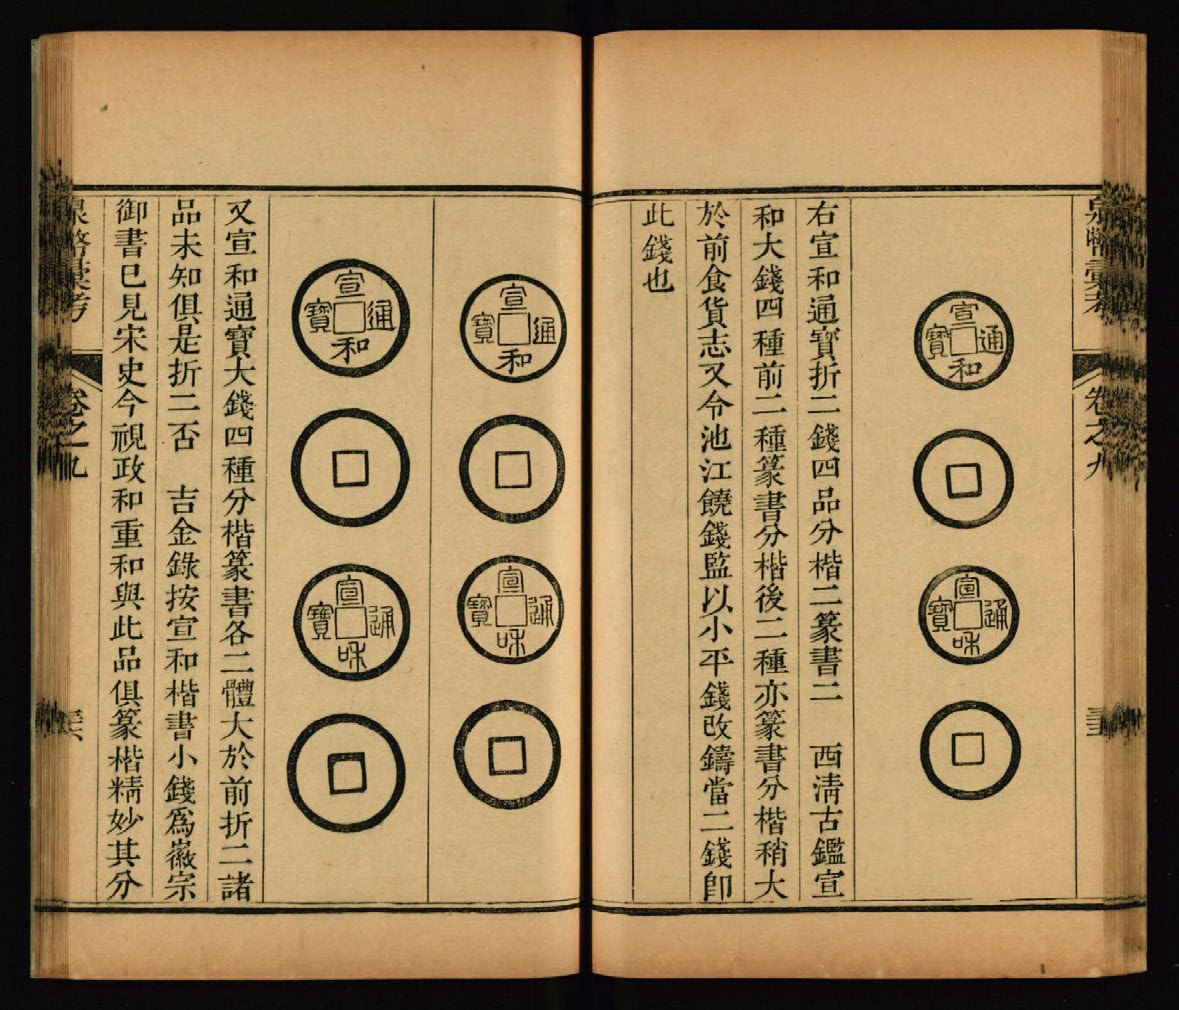 泉幣彙考
卷之九
宣和通寶
宣和通寶
右宣和通寶折二錢四品分楷二篆書二　西清古鑑宣
和大錢四種前二種篆書分楷後二種亦篆書分楷稍大
於前食貨志又令池江饒錢監以小平錢改鑄當二錢卽
此錢也
宣和通寶
宣和通寶
宣和通寶
宣和通寶
又宣和通寶大錢四種分楷篆書各二體大於前折二諸
品未知俱是折二否　吉金錄按宣和楷書小錢爲徽宗
御書已見宋史今視政和重和與此品俱篆楷精妙其分
泉幣彙考
卷之九